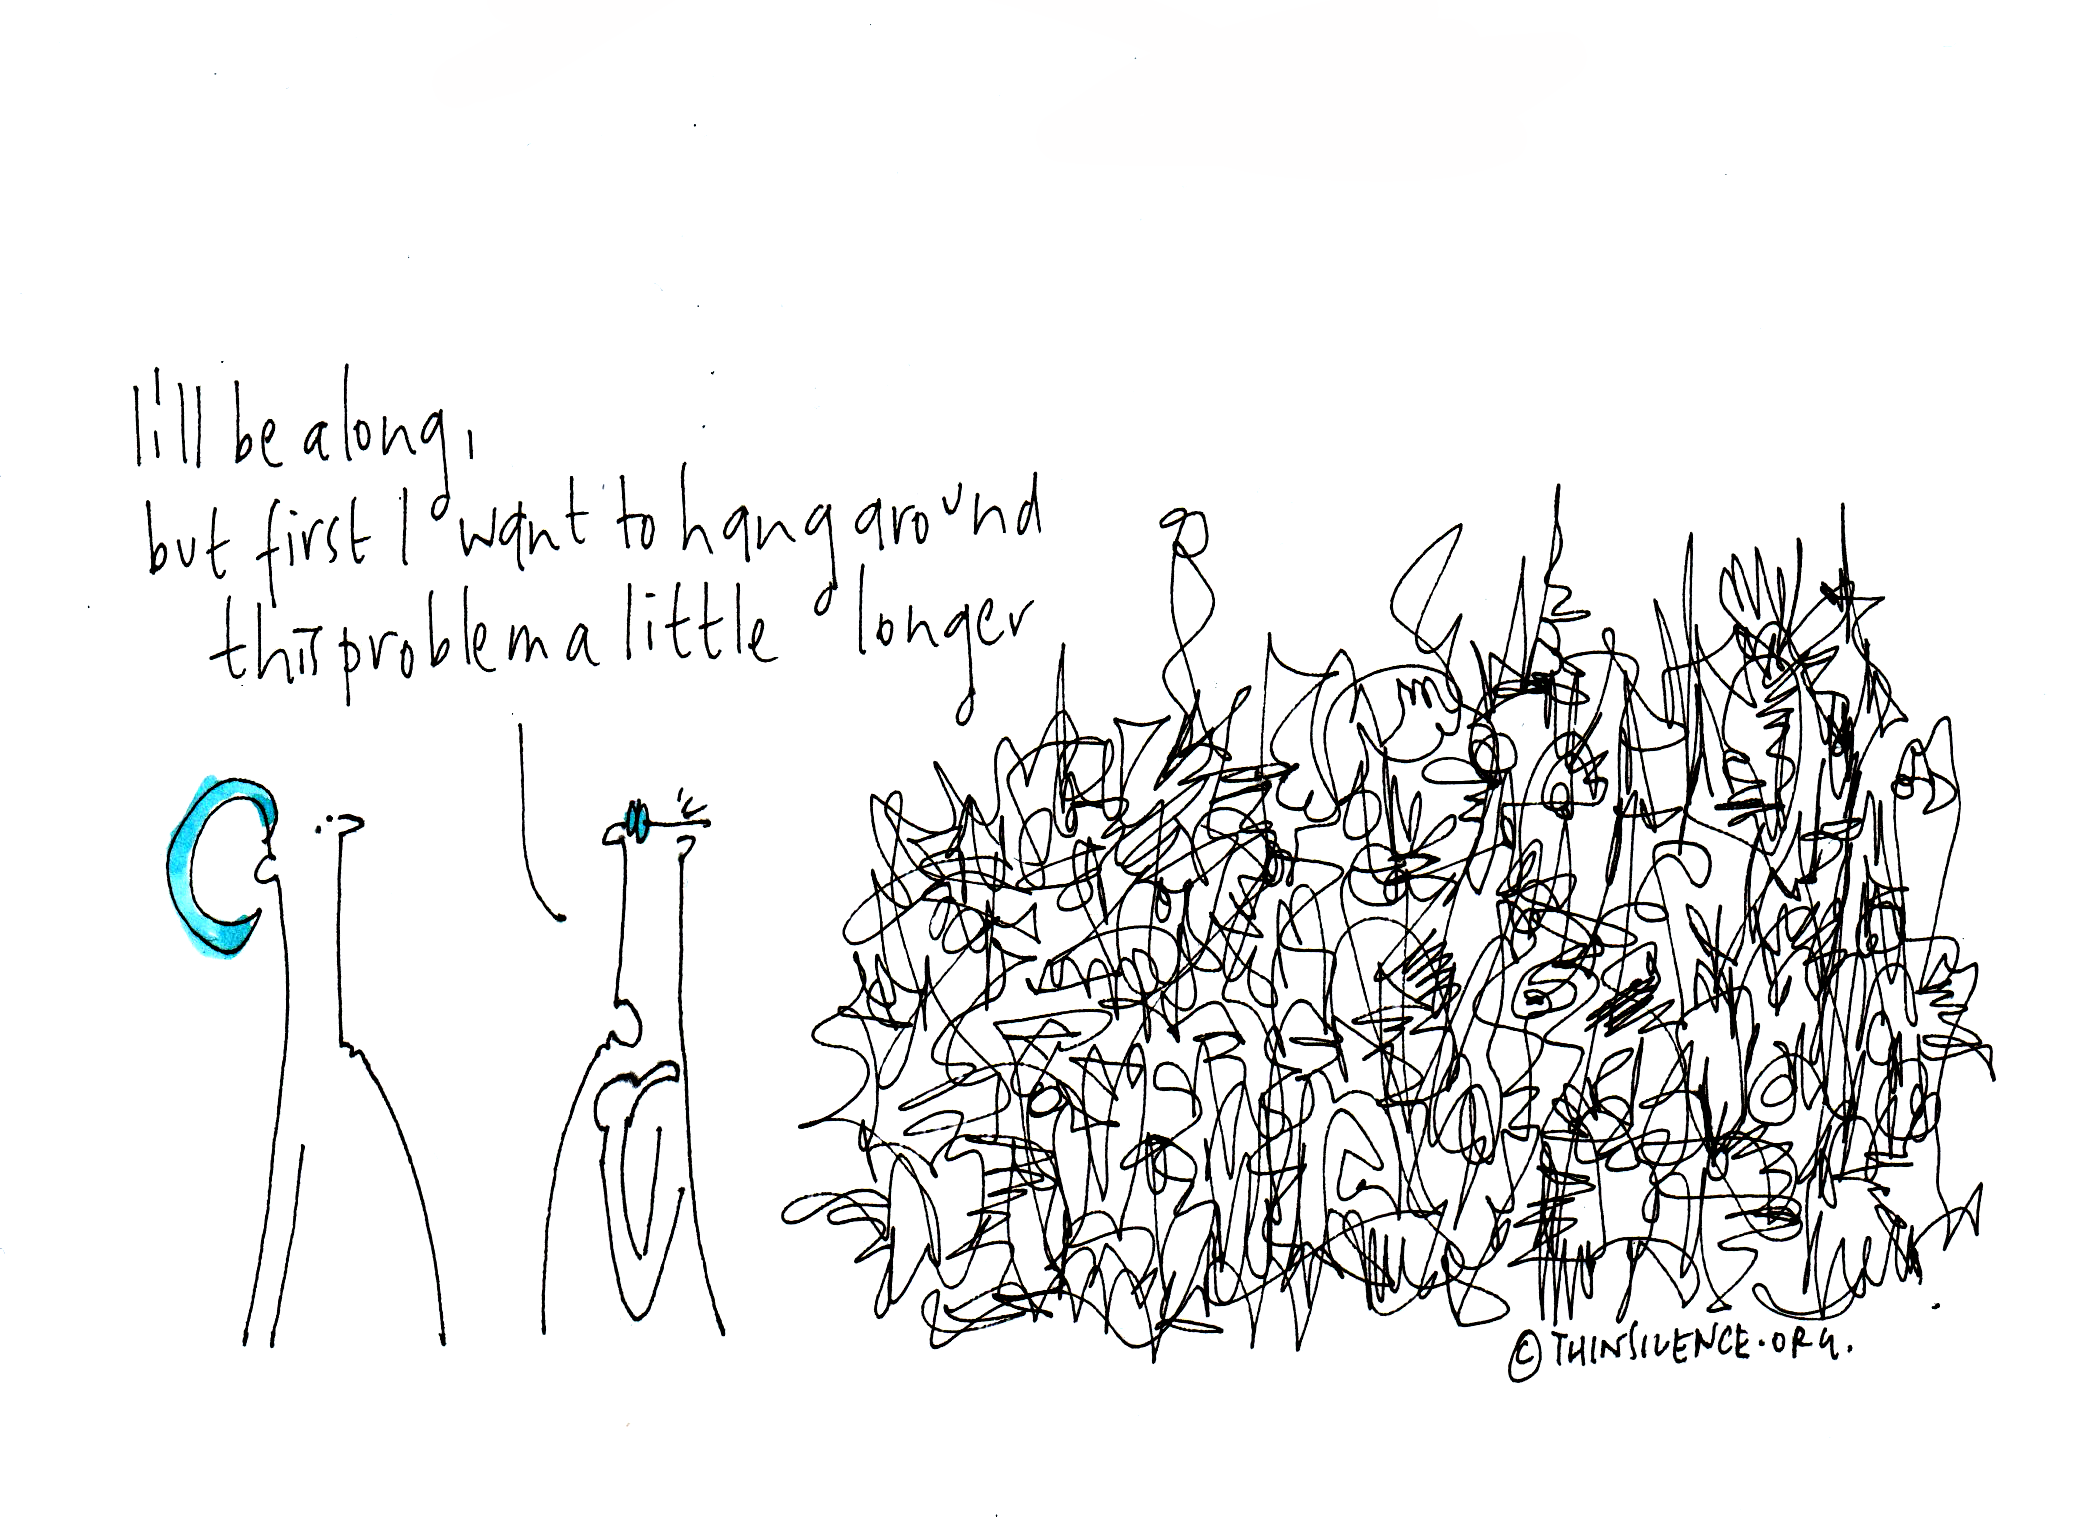 I'll be along,
but first I want to hang around
this problem a little longer
© THINSILENCE.ORG.